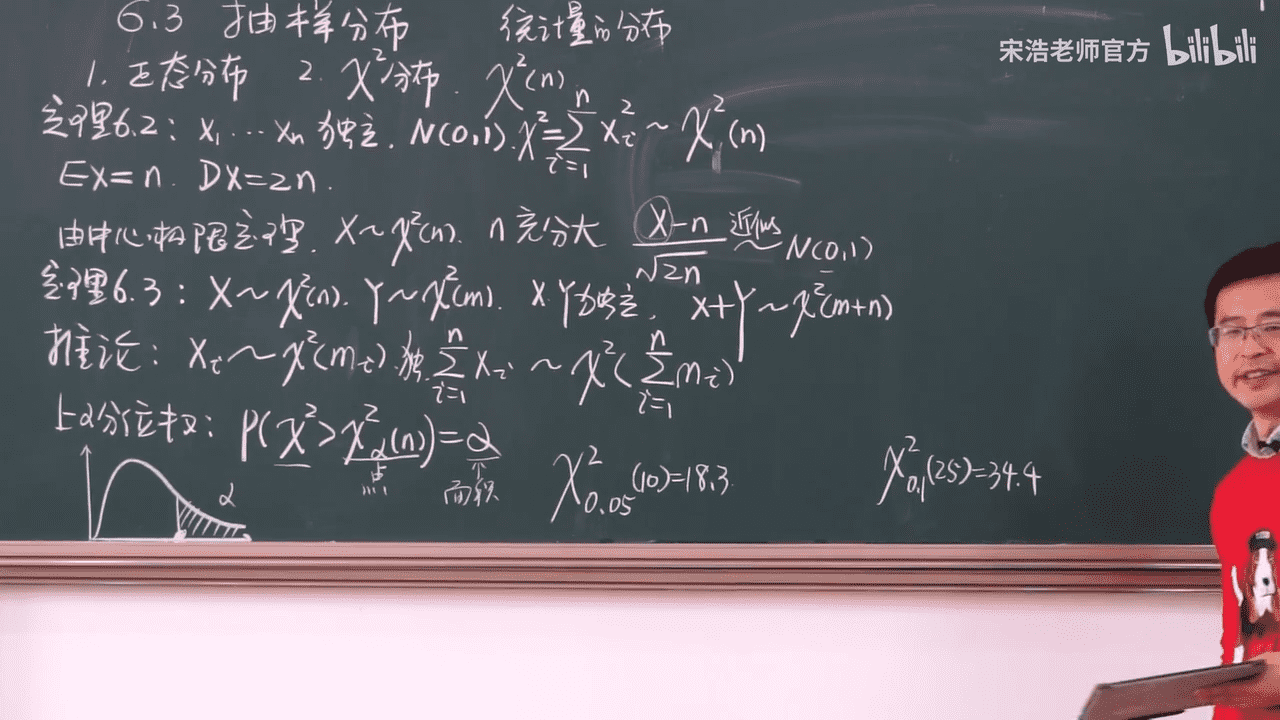 6.3 抽样分布 统计量的分布
宋浩老师官方 bilibili
1. 正态分布 2. χ²分布. χ²(n)
定理6.2: x₁ … xₙ 独立. N(0,1). χ²=∑ᵢ₌₁ⁿ xᵢ² ~ χ²(n)
EX=n. DX=2n.
由中心极限定理. X~χ²(n). n 充分大 (X-n)/√2n 近似~ N(0,1)
定理6.3: X~χ²(n). Y~χ²(m). X.Y独立. X+Y~χ²(m+n)
推论: Xᵢ~χ²(mᵢ).独. ∑ᵢ₌₁ⁿ Xᵢ ~ χ²(∑ᵢ₌₁ⁿ mᵢ)
上α分位数: P(χ²>χ²_α(n))=α
点 面积
α
χ²_0.05(10)=18.3
χ²_0.1(25)=34.4